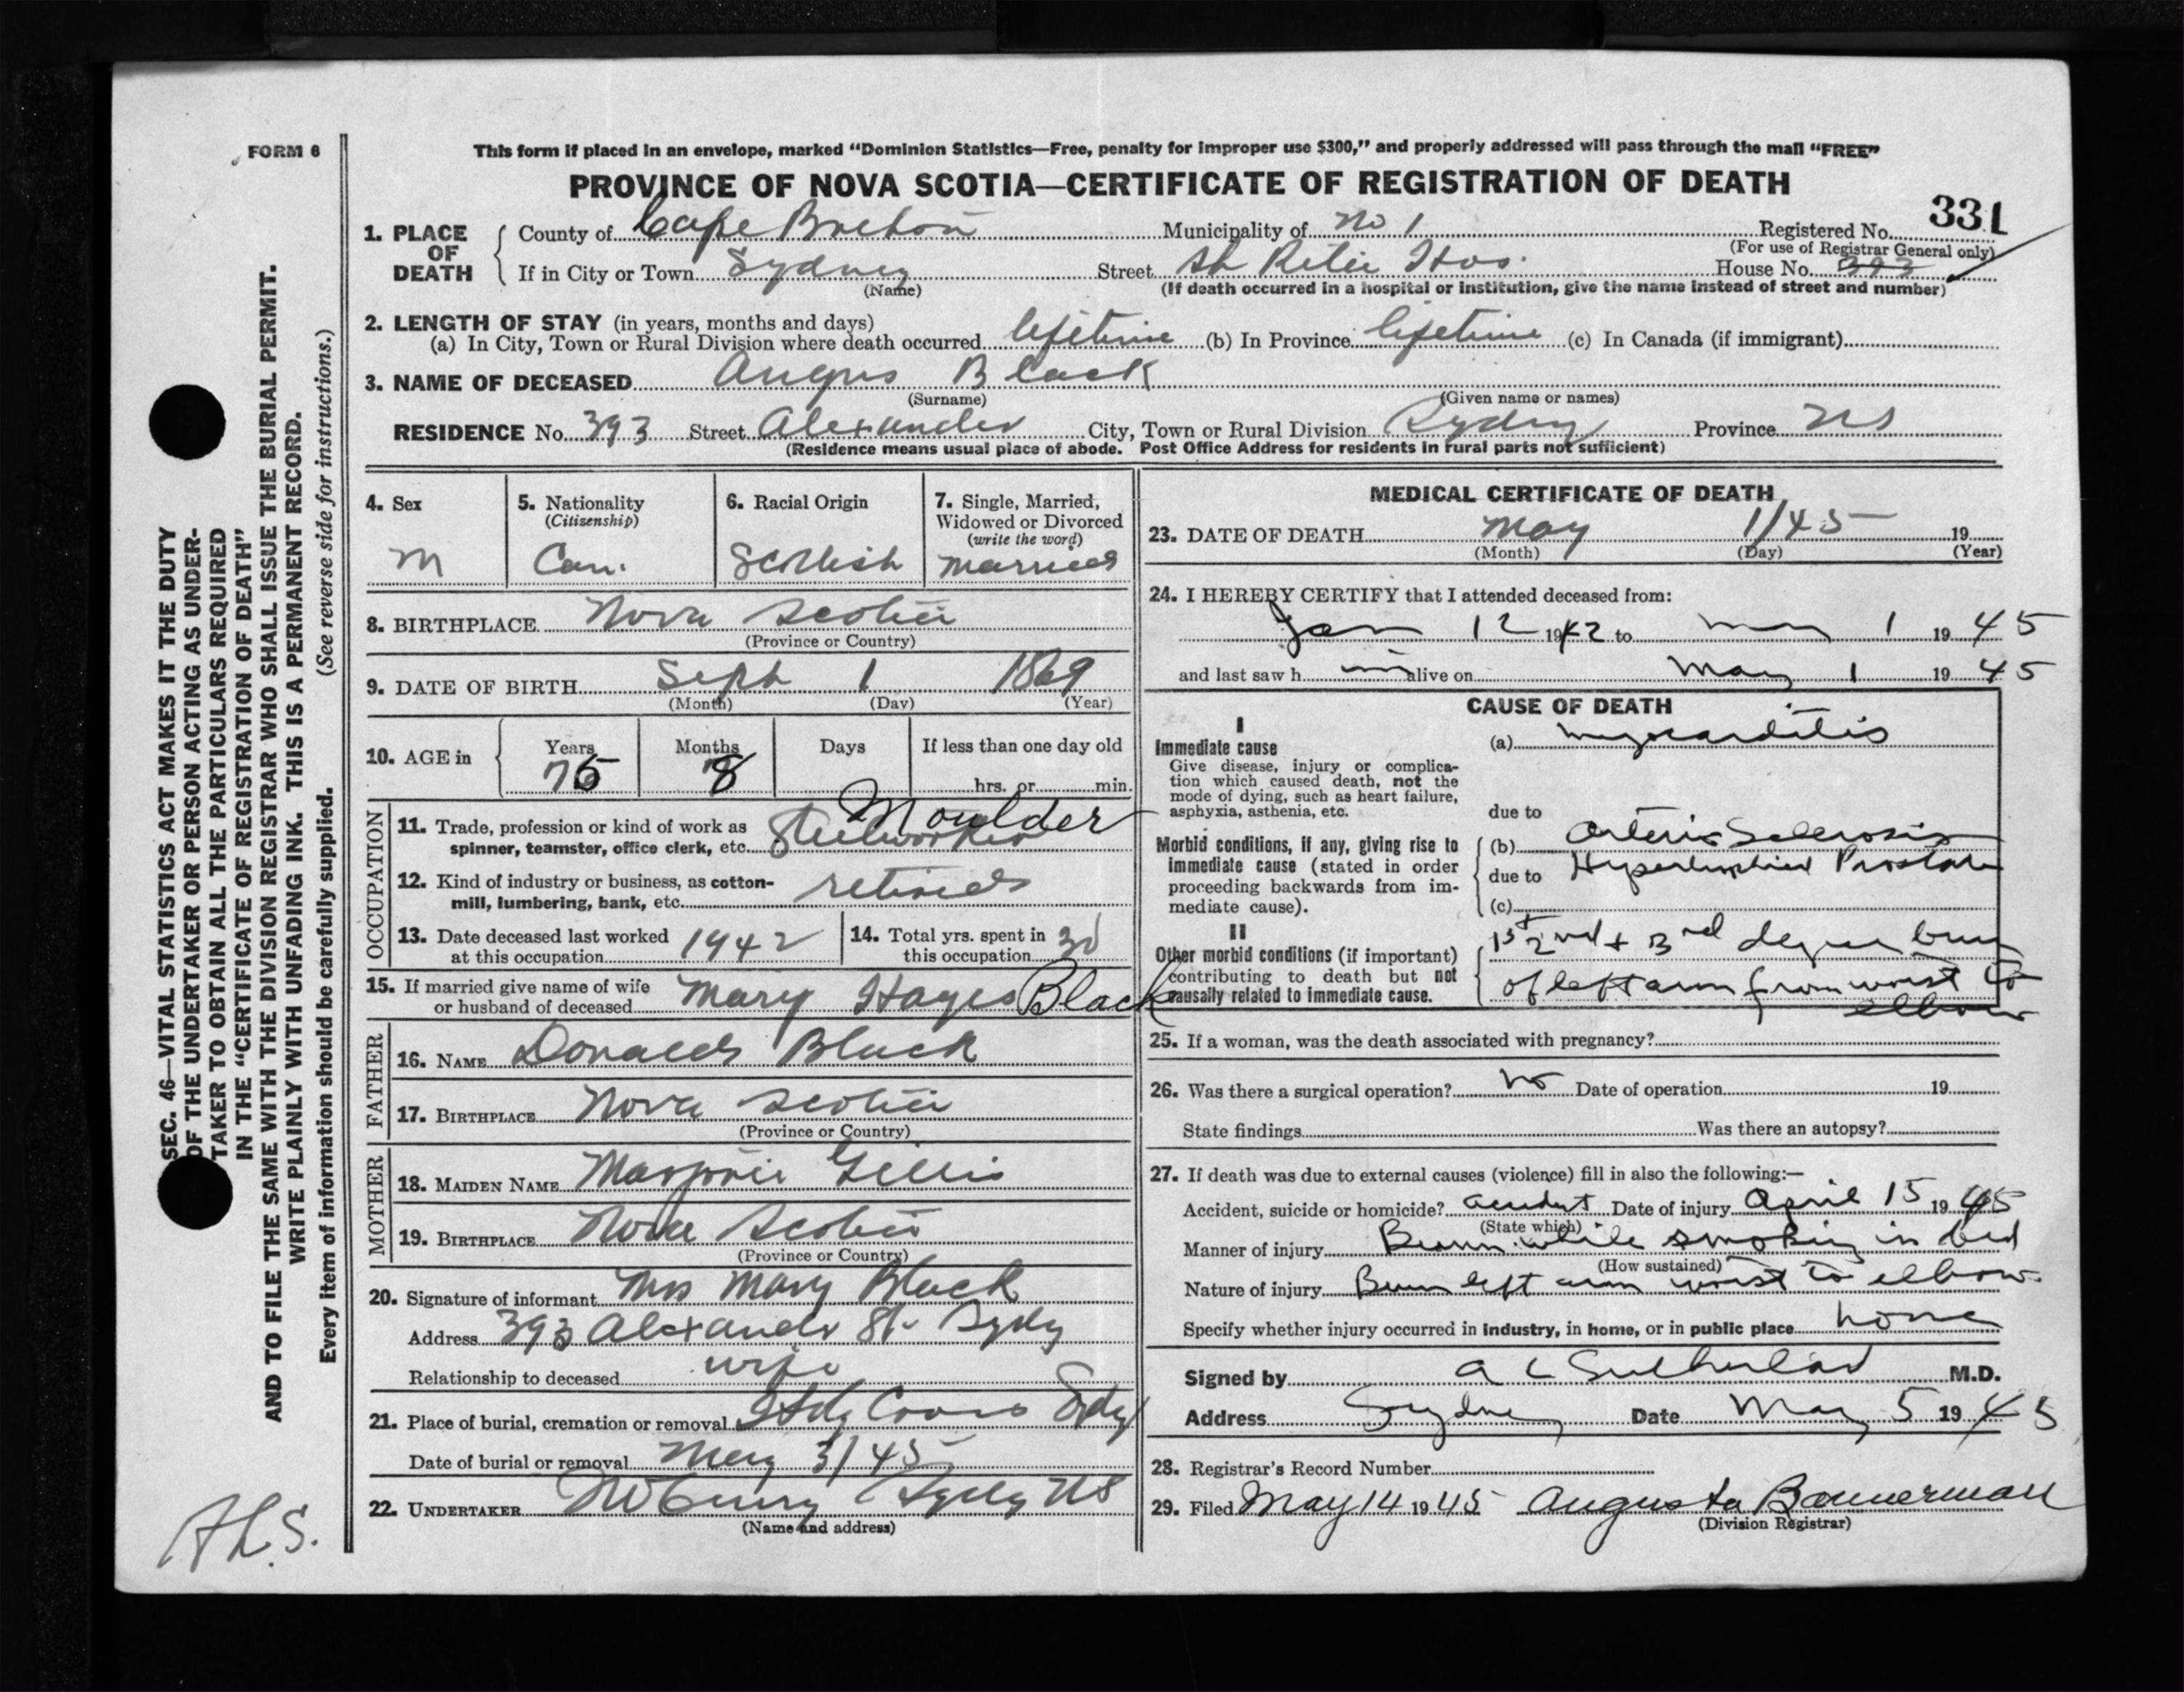 FORM 6
This form if placed in an envelope, marked “Dominion Statistics—Free, penalty for improper use $300,” and properly addressed will pass through the mail “FREE”
PROVINCE OF NOVA SCOTIA—CERTIFICATE OF REGISTRATION OF DEATH
331
1. PLACE OF DEATH County of Cape Breton Municipality of No 1 Registered No.
(For use of Registrar General only)
If in City or Town Sydney Street St Rita Hos. House No. 393
(Name) (If death occurred in a hospital or institution, give the name instead of street and number)
2. LENGTH OF STAY (in years, months and days)
(a) In City, Town or Rural Division where death occurred lifetime (b) In Province lifetime (c) In Canada (if immigrant)
3. NAME OF DECEASED Angus Black
(Surname) (Given name or names)
RESIDENCE No. 393 Street Alexander City, Town or Rural Division Sydney Province NS
(Residence means usual place of abode. Post Office Address for residents in rural parts not sufficient)
4. Sex 5. Nationality 6. Racial Origin 7. Single, Married,
(Citizenship) Widowed or Divorced
(write the word)
M Can. Scottish married
8. BIRTHPLACE Nova Scotia
(Province or Country)
9. DATE OF BIRTH Sept 1 1869
(Month) (Day) (Year)
10. AGE in Years Months Days If less than one day old
75 8 hrs. or min.
OCCUPATION
Moulder
11. Trade, profession or kind of work as
spinner, teamster, office clerk, etc. Steelworker
12. Kind of industry or business, as cotton-
mill, lumbering, bank, etc. retired
13. Date deceased last worked 1942 14. Total yrs. spent in 30
at this occupation this occupation
15. If married give name of wife
or husband of deceased Mary Hayes Black
FATHER
16. NAME Donald Black
17. BIRTHPLACE Nova Scotia
(Province or Country)
MOTHER
18. MAIDEN NAME Marjorie Gillis
19. BIRTHPLACE Nova Scotia
(Province or Country)
20. Signature of informant Mrs Mary Black
Address 393 Alexander St. Sydney
Relationship to deceased wife
21. Place of burial, cremation or removal Cross Sydney
Date of burial or removal May 3/45
22. UNDERTAKER Sydney NS
(Name and address)
MEDICAL CERTIFICATE OF DEATH
23. DATE OF DEATH May 1/45 19
(Month) (Day) (Year)
24. I HEREBY CERTIFY that I attended deceased from:
Jan 12 1942 to May 1 1945
and last saw h im alive on May 1 1945
CAUSE OF DEATH
I
Immediate cause (a) Myocarditis
Give disease, injury or complica-
tion which caused death, not the
mode of dying, such as heart failure,
asphyxia, asthenia, etc. due to
Morbid conditions, if any, giving rise to (b) Arterio Sclerosis
immediate cause (stated in order
proceeding backwards from im- due to Hypertrophied Prostate
mediate cause). (c)
II
Other morbid conditions (if important) 1st 2nd + 3rd degree burn
contributing to death but not
causally related to immediate cause. of left arm from wrist to
elbow
25. If a woman, was the death associated with pregnancy?
26. Was there a surgical operation? no Date of operation 19
State findings Was there an autopsy?
27. If death was due to external causes (violence) fill in also the following:—
Accident, suicide or homicide? accident Date of injury April 15 1945
(State which)
Manner of injury Burn while smoking in bed
(How sustained)
Nature of injury Burn left arm wrist to elbow.
Specify whether injury occurred in industry, in home, or in public place home
Signed by A L Sutherland M.D.
Address Sydney Date May 5 1945
28. Registrar's Record Number
29. Filed May 14 1945 Augusta Bannerman
(Division Registrar)
SEC. 46—VITAL STATISTICS ACT MAKES IT THE DUTY
OF THE UNDERTAKER OR PERSON ACTING AS UNDER-
TAKER TO OBTAIN ALL THE PARTICULARS REQUIRED
IN THE “CERTIFICATE OF REGISTRATION OF DEATH”
AND TO FILE THE SAME WITH THE DIVISION REGISTRAR WHO SHALL ISSUE THE BURIAL PERMIT.
WRITE PLAINLY WITH UNFADING INK. THIS IS A PERMANENT RECORD.
Every item of information should be carefully supplied. (See reverse side for instructions.)